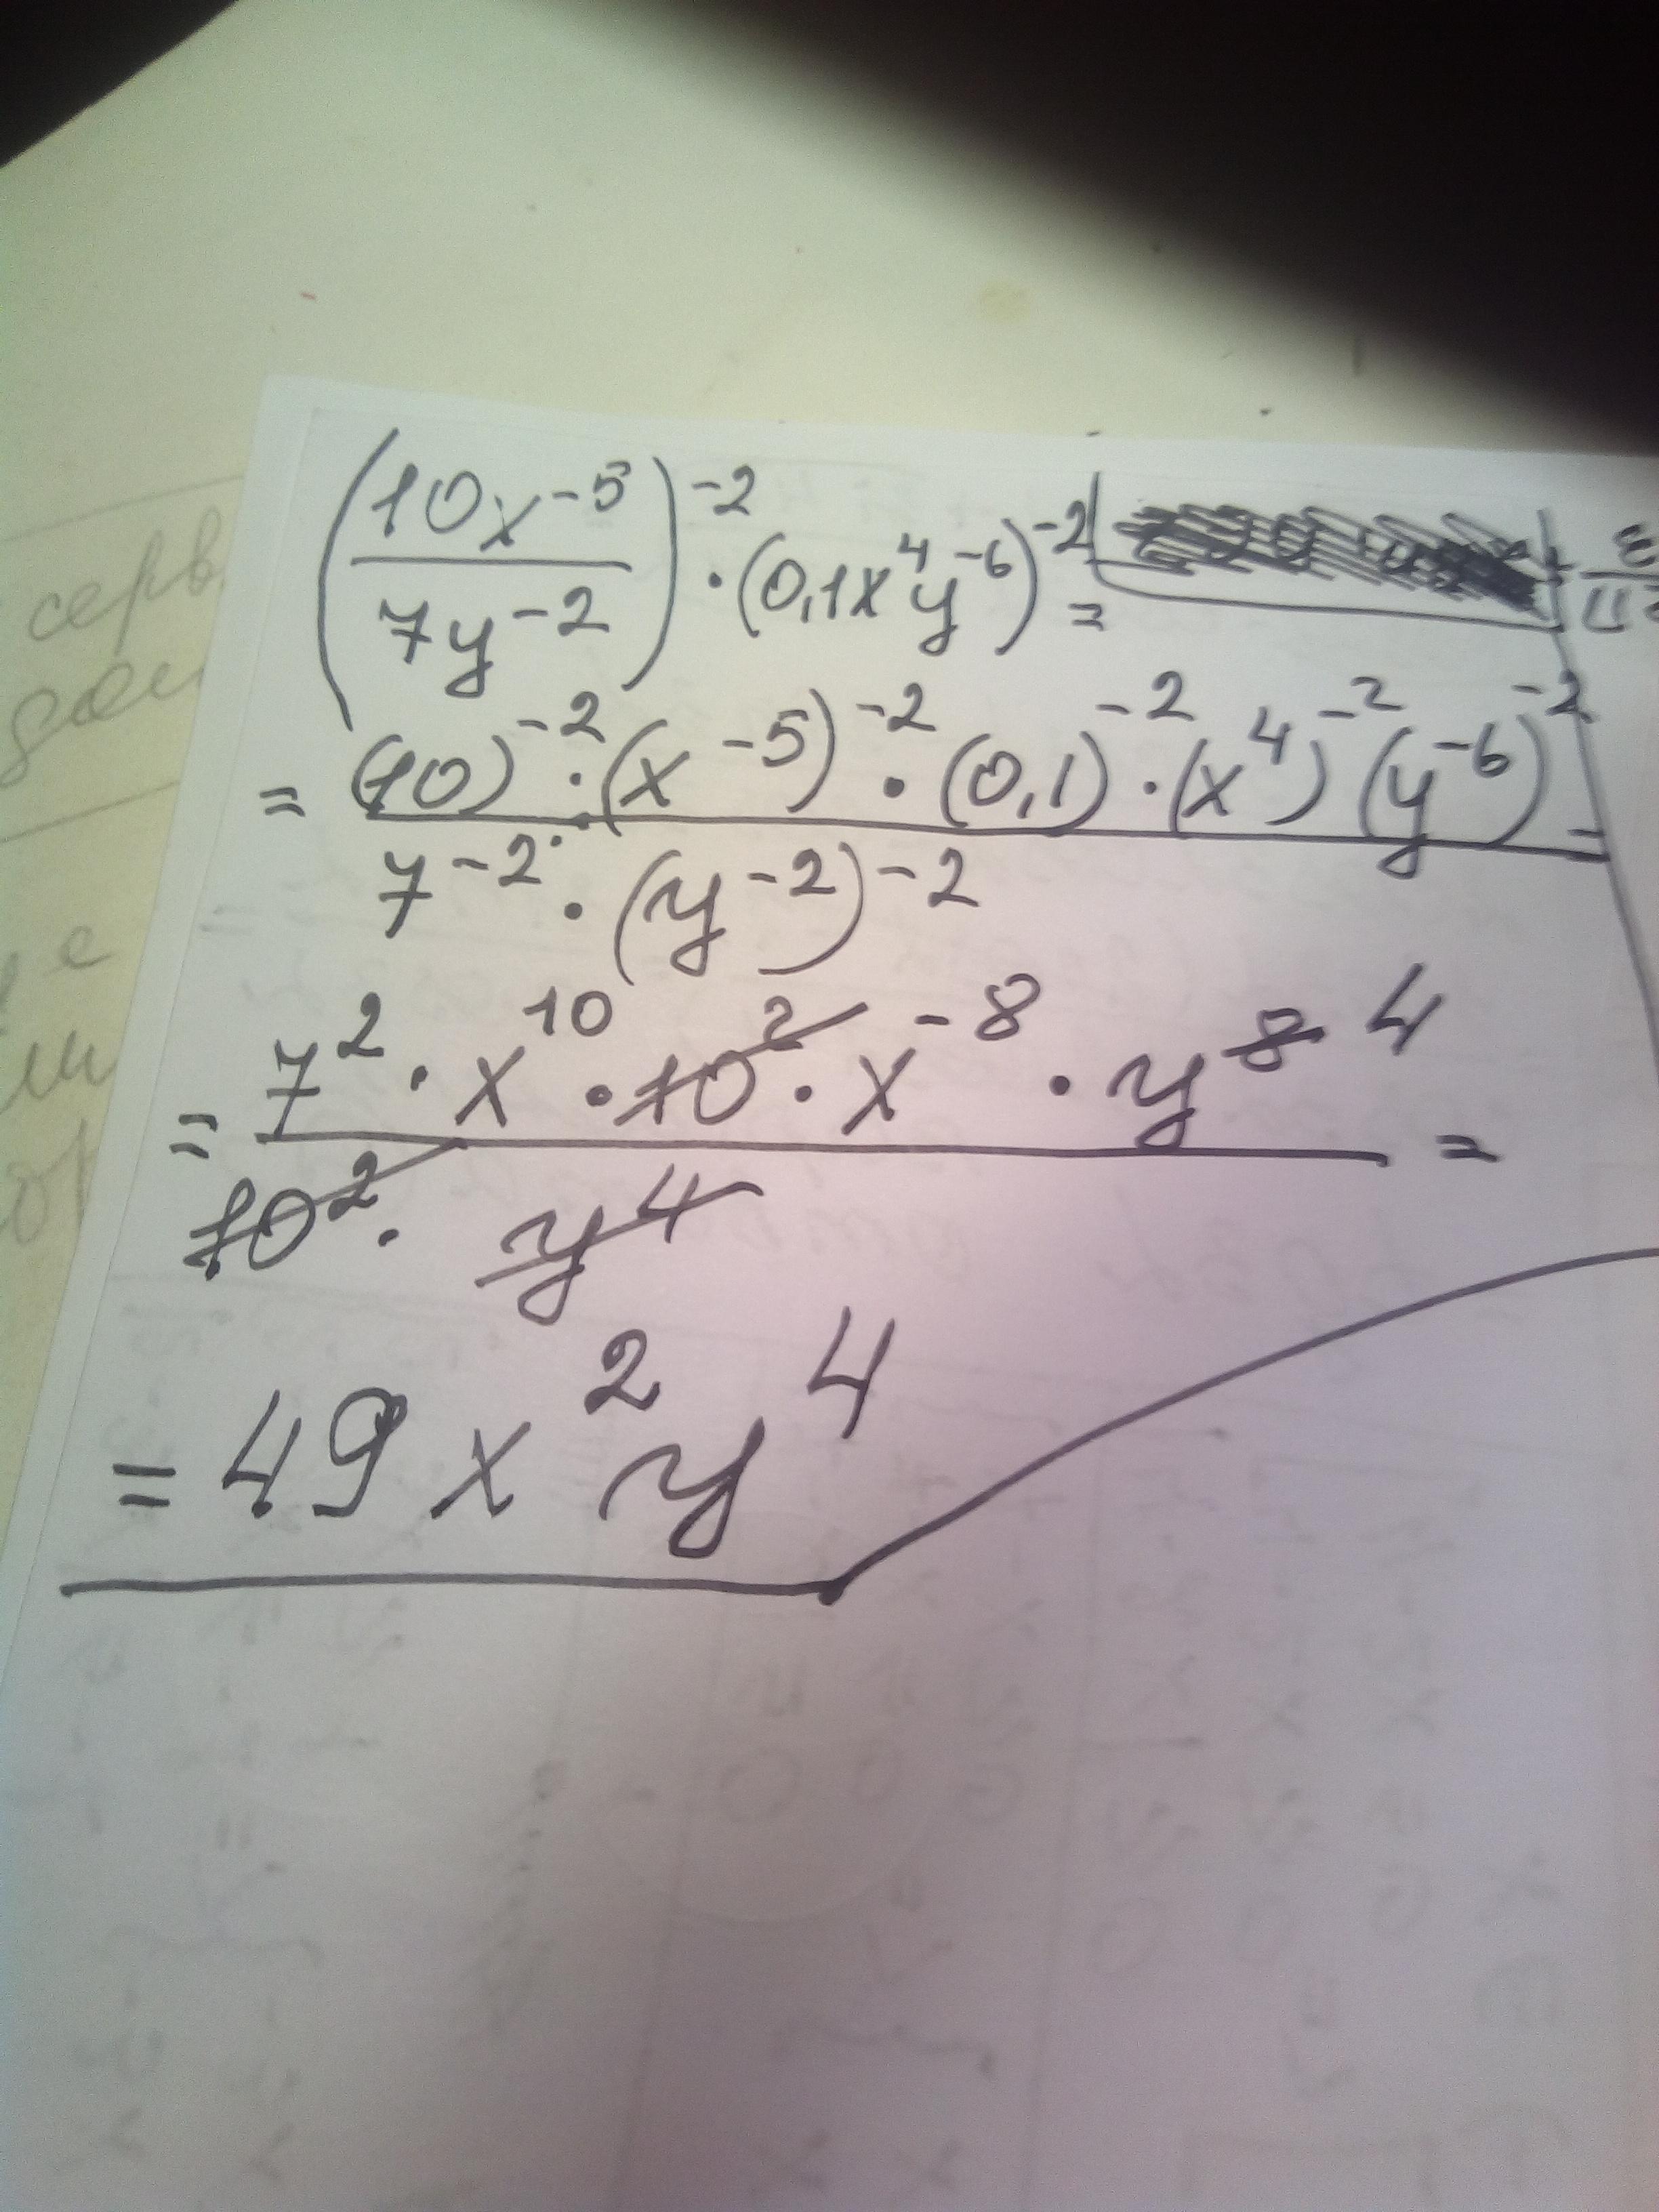 (10x⁻⁵/7y⁻²)⁻² · (0,1x⁴y⁻⁶)⁻² =
= (10)⁻² · (x⁻⁵)⁻² · (0,1)⁻² · (x⁴)⁻² (y⁻⁶)⁻² / 7⁻² · (y⁻²)⁻² =
= 7² · x¹⁰ · 10² · x⁻⁸ · y⁸ ⁴ / 10² · y⁴ =
= 49x²y⁴
серв